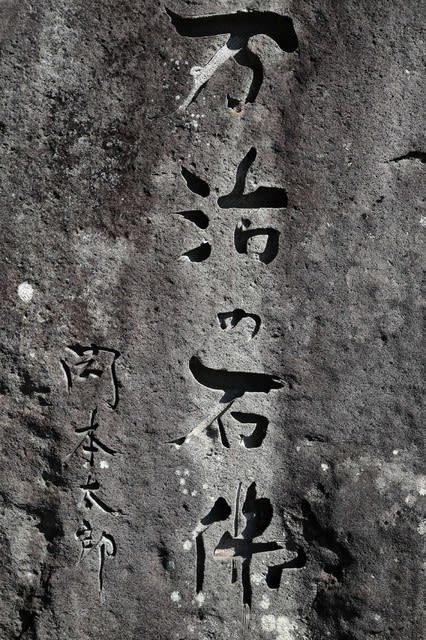 万治の石佛
岡本太郎